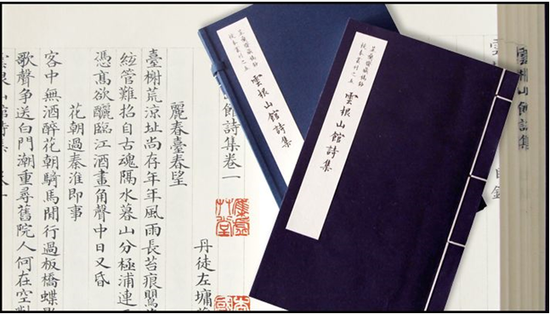 雲根山館詩集
目錄
校本叢刊之五
雲根山館詩集
校本叢刊之五
雲根山館詩集
館詩集卷一
丹徒左墉
麗春臺春望
臺榭荒涼址尚存年年風雨長苔痕
絃管難招自古魂隔水暮山分極浦連
憑高欲釃臨江酒畫角聲中日又昏
花朝過秦淮即事
客中無酒醉花朝騎馬閒行過板橋蝶
歌聲爭送白門潮重尋舊院人何在空對
山館詩集